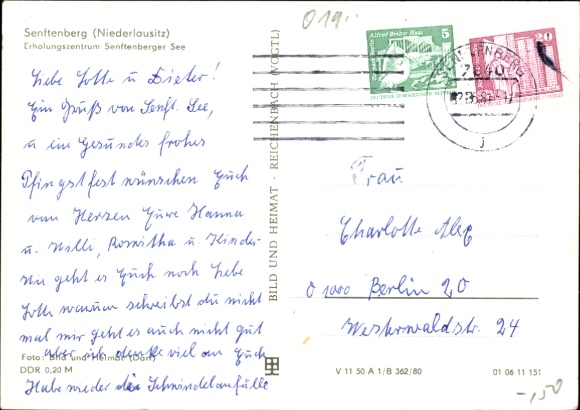 Senftenberg (Niederlausitz)
Erholungszentrum Senftenberger See
019.
Alfred Brehm Haus
5
20
SENFTENBERG
7840
j
Liebe Lotte u Dieter!
Ein Gruß von Senft. See,
u ein Gesundes frohes
Pfingstfest wünschen Euch
von Herzen Eure Hanna
u. Willi, Romitha u. Kinder
Wie geht es Euch noch Liebe
Lotte warum schreibst du nicht
mal mir geht es auch nicht gut
aber ich denke viel an Euch
Habe wieder die Schwindelanfälle
Foto: Bild und Heimat (Darr)
DDR 0,20 M
BILD UND HEIMAT · REICHENBACH (VOGTL)
Frau
Charlotte Alex
0 1000 Berlin 20
Westerwaldstr. 24
V 11 50 A 1/B 362/80
01 06 11 151
-,50